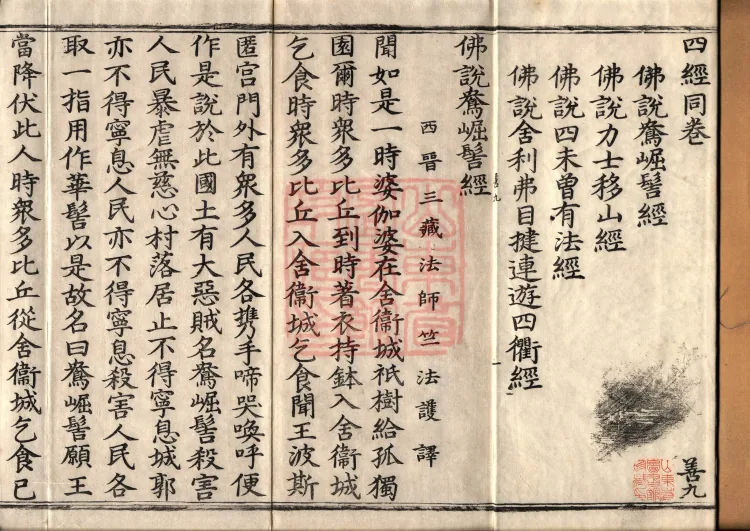 四經同卷
佛說鴦崛髻經
佛說力士移山經
佛說四未曾有法經
佛說舍利弗目揵連遊四衢經
善九
佛說鴦崛髻經
西晉三藏法師竺法護譯
聞如是一時婆伽婆在舍衞城祇樹給孤獨
園爾時衆多比丘到時著衣持鉢入舍衞城
乞食時衆多比丘入舍衞城乞食聞王波斯
匿宫門外有衆多人民各携手啼哭喚呼便
作是說於此國土有大惡賊名鴦崛髻殺害
人民暴虐無慈心村落居止不得寧息城郭
亦不得寧息人民亦不得寧息殺害人民各
取一指用作華髻以是故名曰鴦崛髻願王
當降伏此人時衆多比丘從舍衞城乞食已